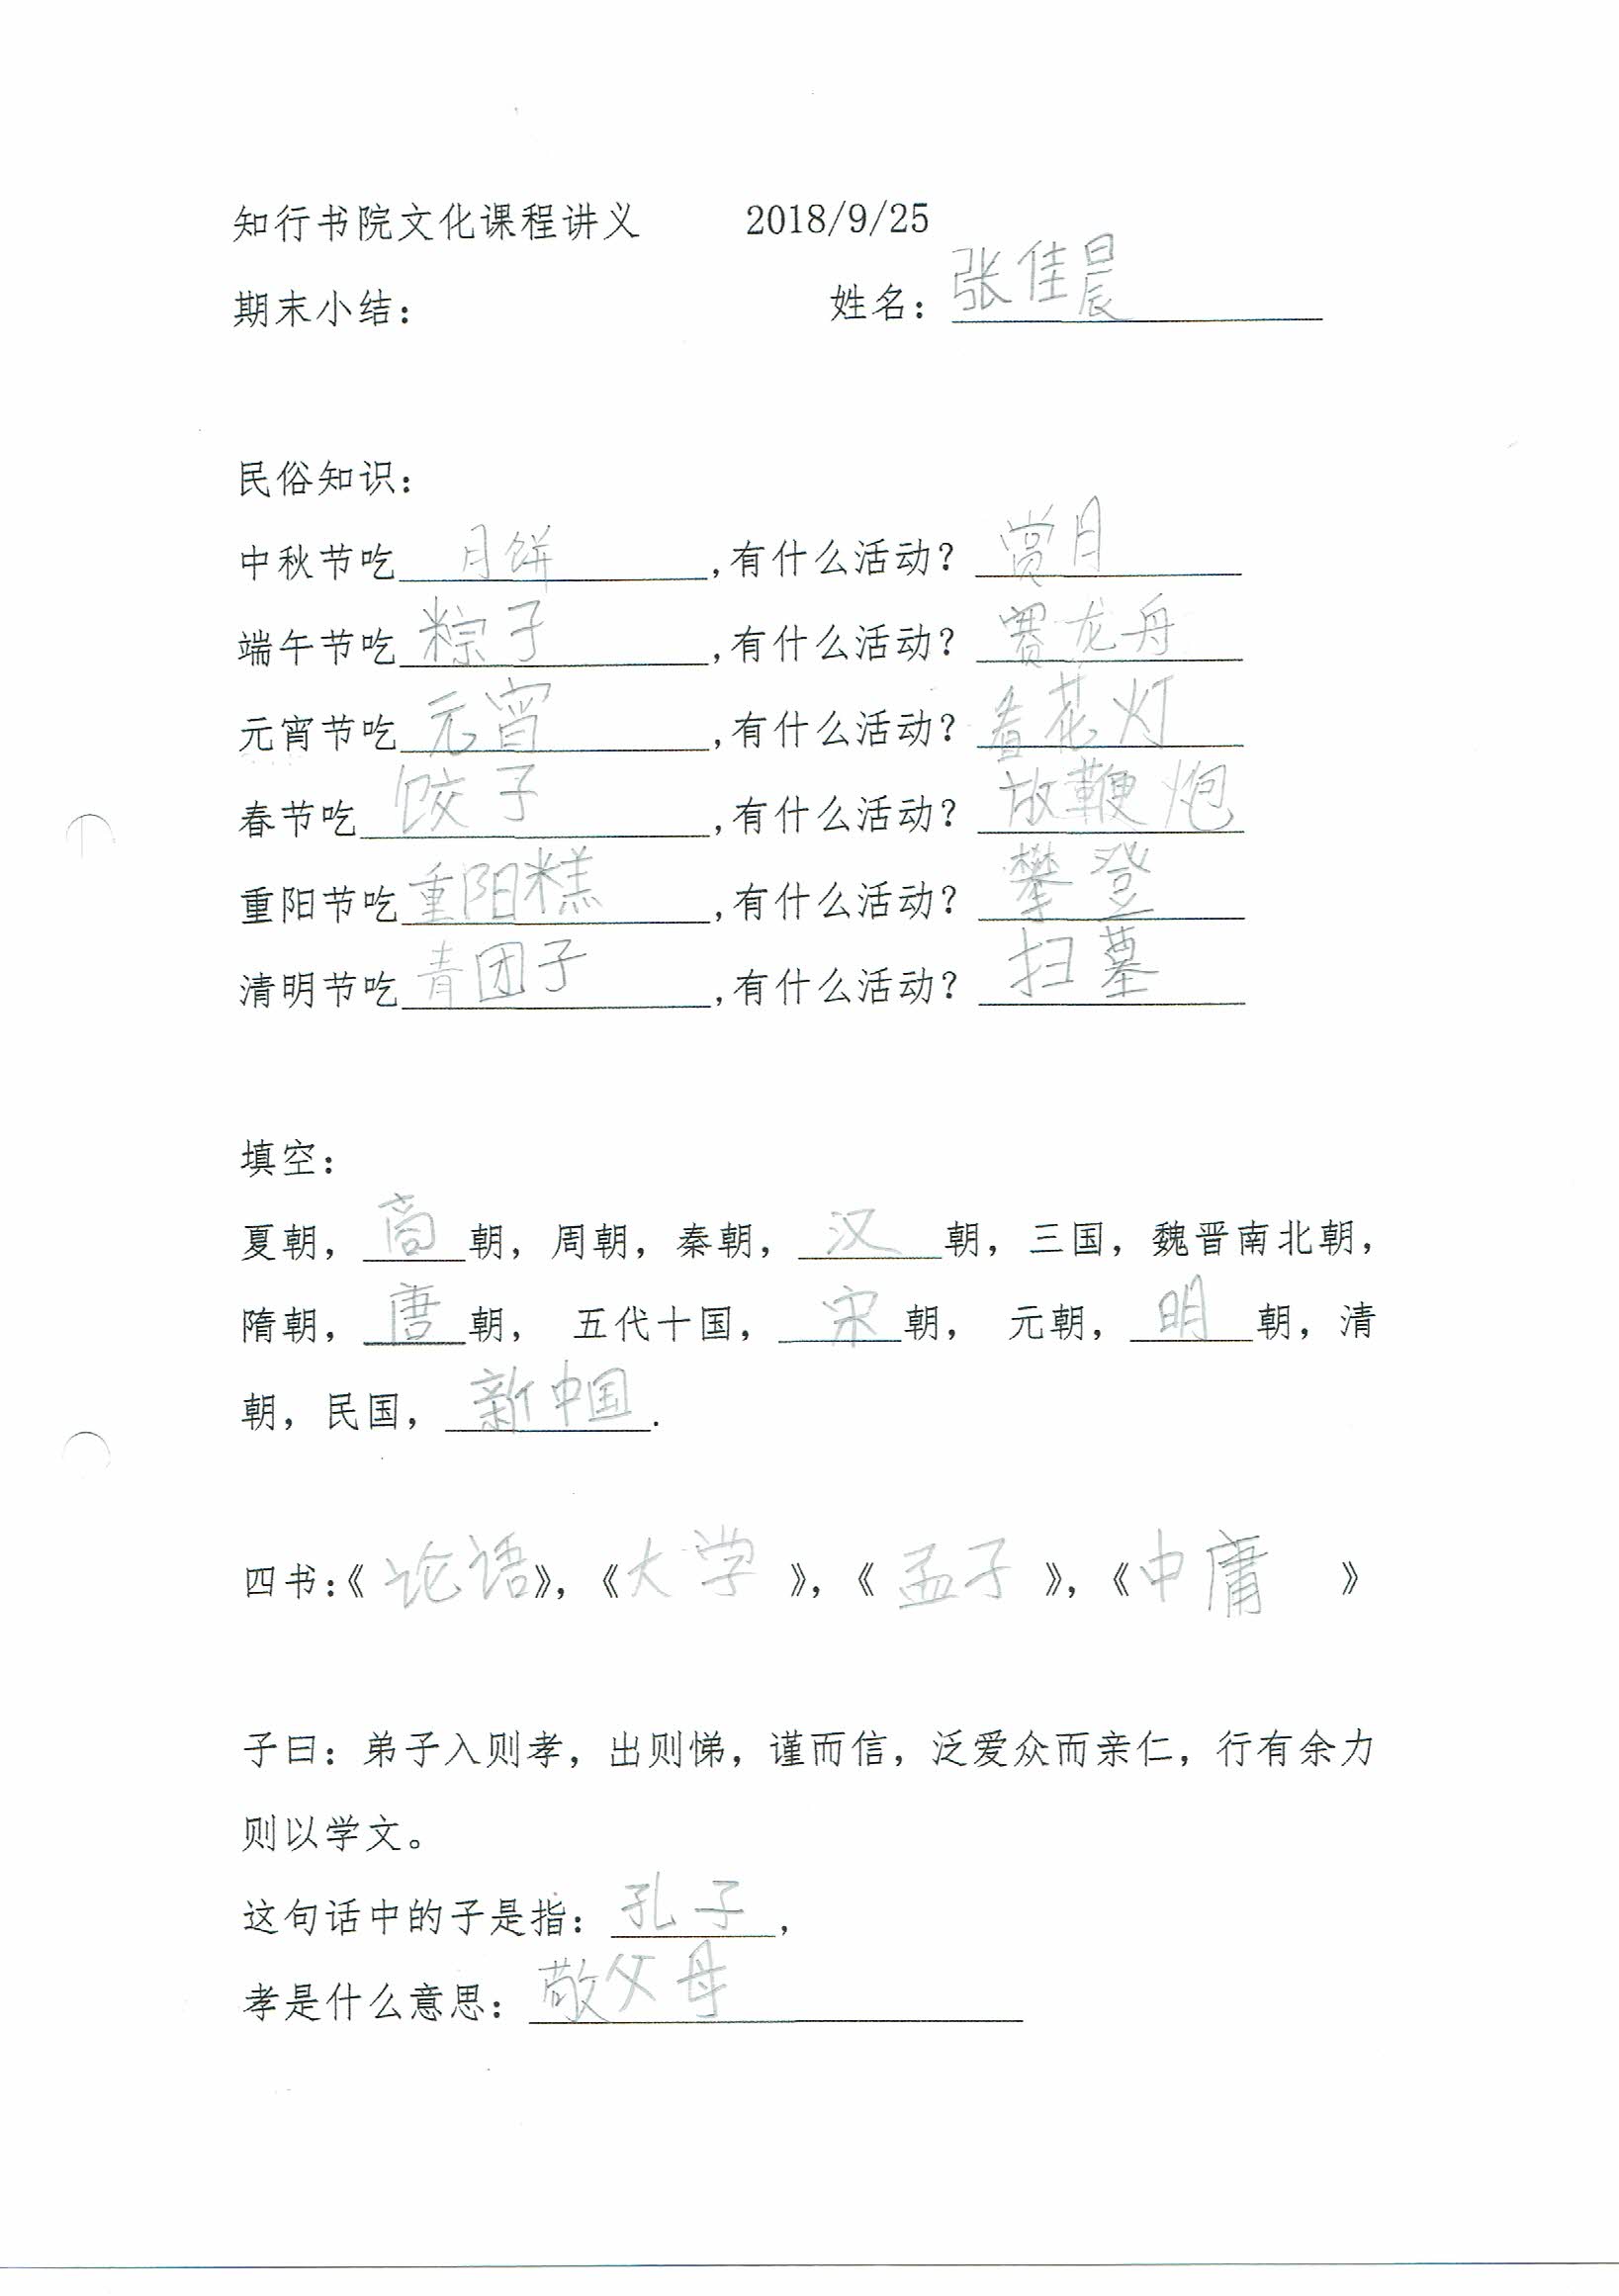 知行书院文化课程讲义 2018/9/25
期末小结： 姓名：张佳晨
民俗知识：
中秋节吃月饼，有什么活动？赏月
端午节吃粽子，有什么活动？赛龙舟
元宵节吃元宵，有什么活动？看花灯
春节吃饺子，有什么活动？放鞭炮
重阳节吃重阳糕，有什么活动？攀登
清明节吃青团子，有什么活动？扫墓
填空：
夏朝，商朝，周朝，秦朝，汉朝，三国，魏晋南北朝，
隋朝，唐朝， 五代十国，宋朝， 元朝，明朝，清
朝，民国，新中国.
四书：《论语》，《大学》，《孟子》，《中庸》
子曰：弟子入则孝，出则悌，谨而信，泛爱众而亲仁，行有余力
则以学文。
这句话中的子是指：孔子，
孝是什么意思：敬父母